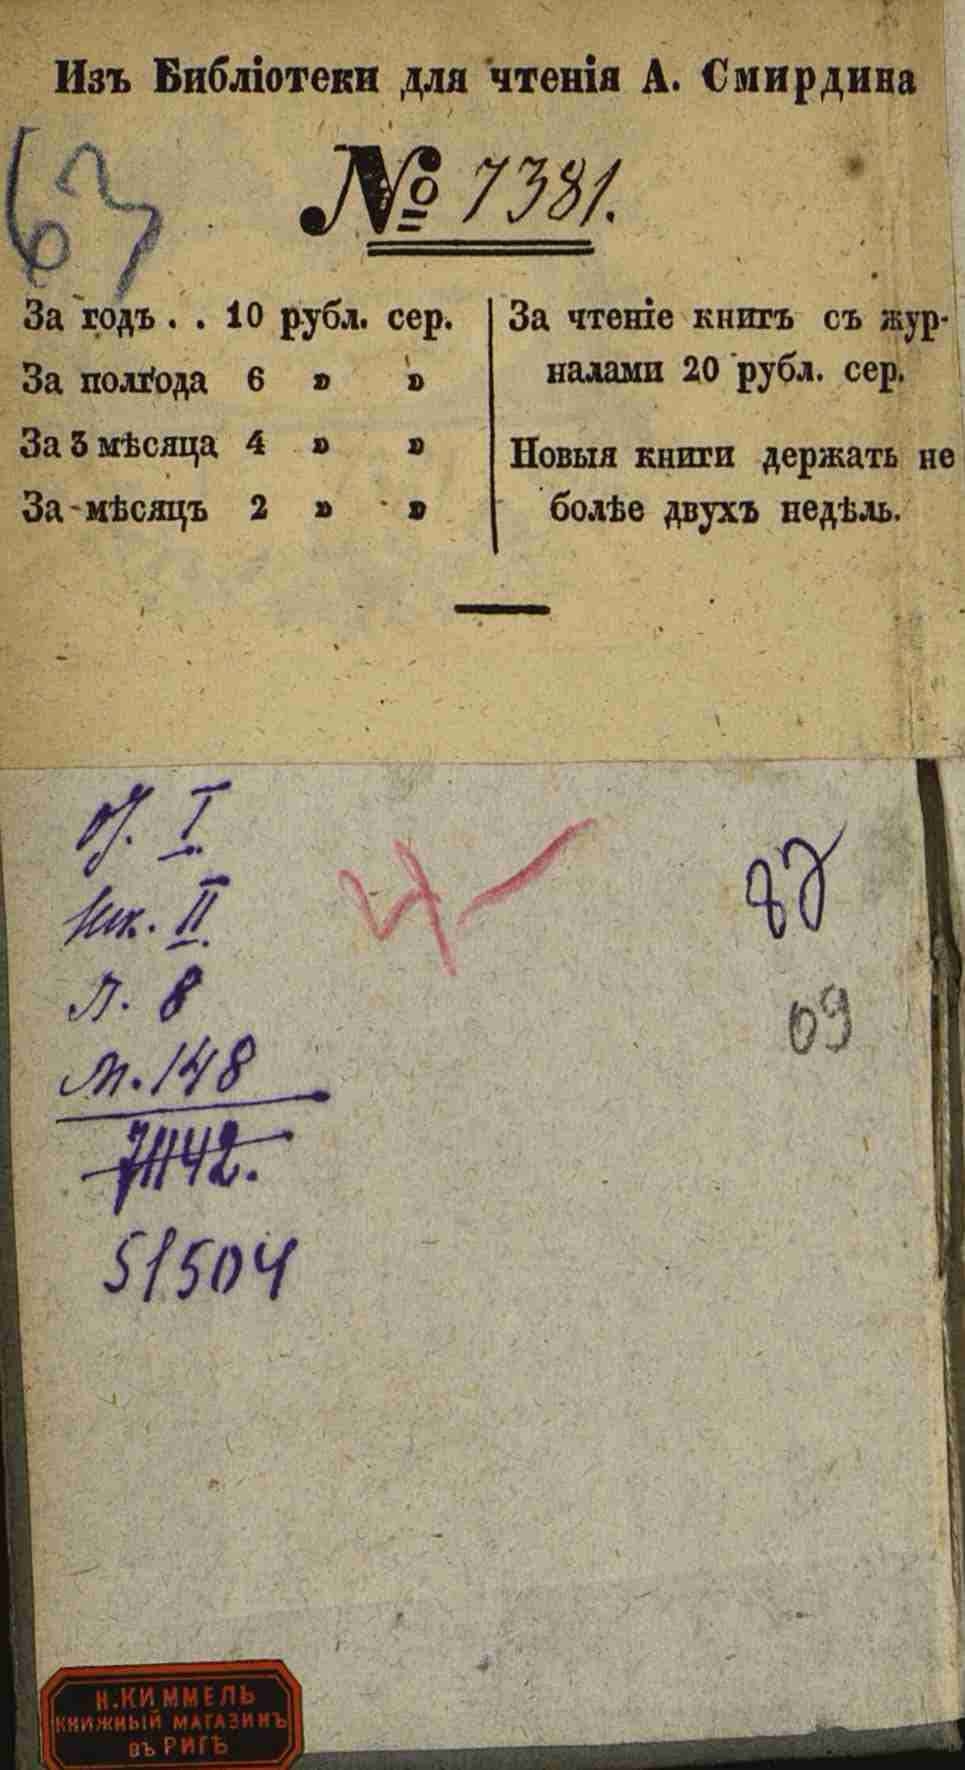 Изъ Библіотеки для чтенія А. Смирдина
63
№ 7381.
За годъ . . 10 рубл. сер.
За полгода 6 » »
За 3 мѣсяца 4 » »
За мѣсяцъ 2 » »
За чтеніе книгъ съ жур-
налами 20 рубл. сер.
Новыя книги держать не
болѣе двухъ недѣль.
I.
Шк. II.
П. 8
М. 148
51504
4-
69
Н. КИММЕЛЬ
КНИЖНЫЙ МАГАЗИНЪ
ВЪ РИГѢ